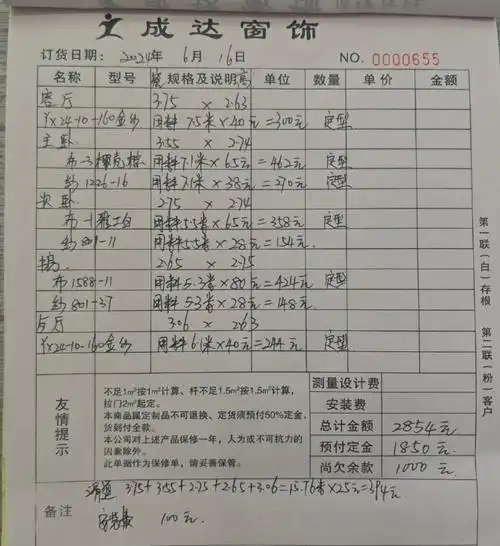 成达窗饰
订货日期: 2024年 6月 16日 NO. 0000655
名称 型号 规格及说明 单位 数量 单价 金额
客厅 3.75 × 2.63
Yx24-10-160金纱 用料 7.5米×40元=300元 定型
主卧 3.55 × 2.74
布-3 用料7.1米×65元=462元 定型
纱1226-16 用料7.1米×38元=270元 定型
次卧 2.75 × 2.74
布-1 用料5.5米×65元=358元 定型
纱801-11 用料5.5米×28元=154元.
2.65 × 2.75
布1588-11 用料5.3米×80元=424元 定型
纱801-37 用料5.3米×28元=148元.
3.06 × 2.63
Yx24-10-160金纱 用料6.1米×40元=244元 定型
第一联(白)存根 第二联(粉)客户
友情提示
不足1m²按1m²计算、杆不足1.5m按1.5m计算,
拉门2m²起定。
本商品属定制品不可退换、定货须预付50%定金,
货到付全款。
本公司对上述产品保修一年,人为或不可抗力的
因素除外。
此单据作为保修单,请妥善保管。
测量设计费
安装费
总计金额 2854元
预付定金 1850元
尚欠余款 1000元
备注
滑道 3.75+3.55+2.75+2.65+3.06=15.76米×25元=394元.
安装费 100元.